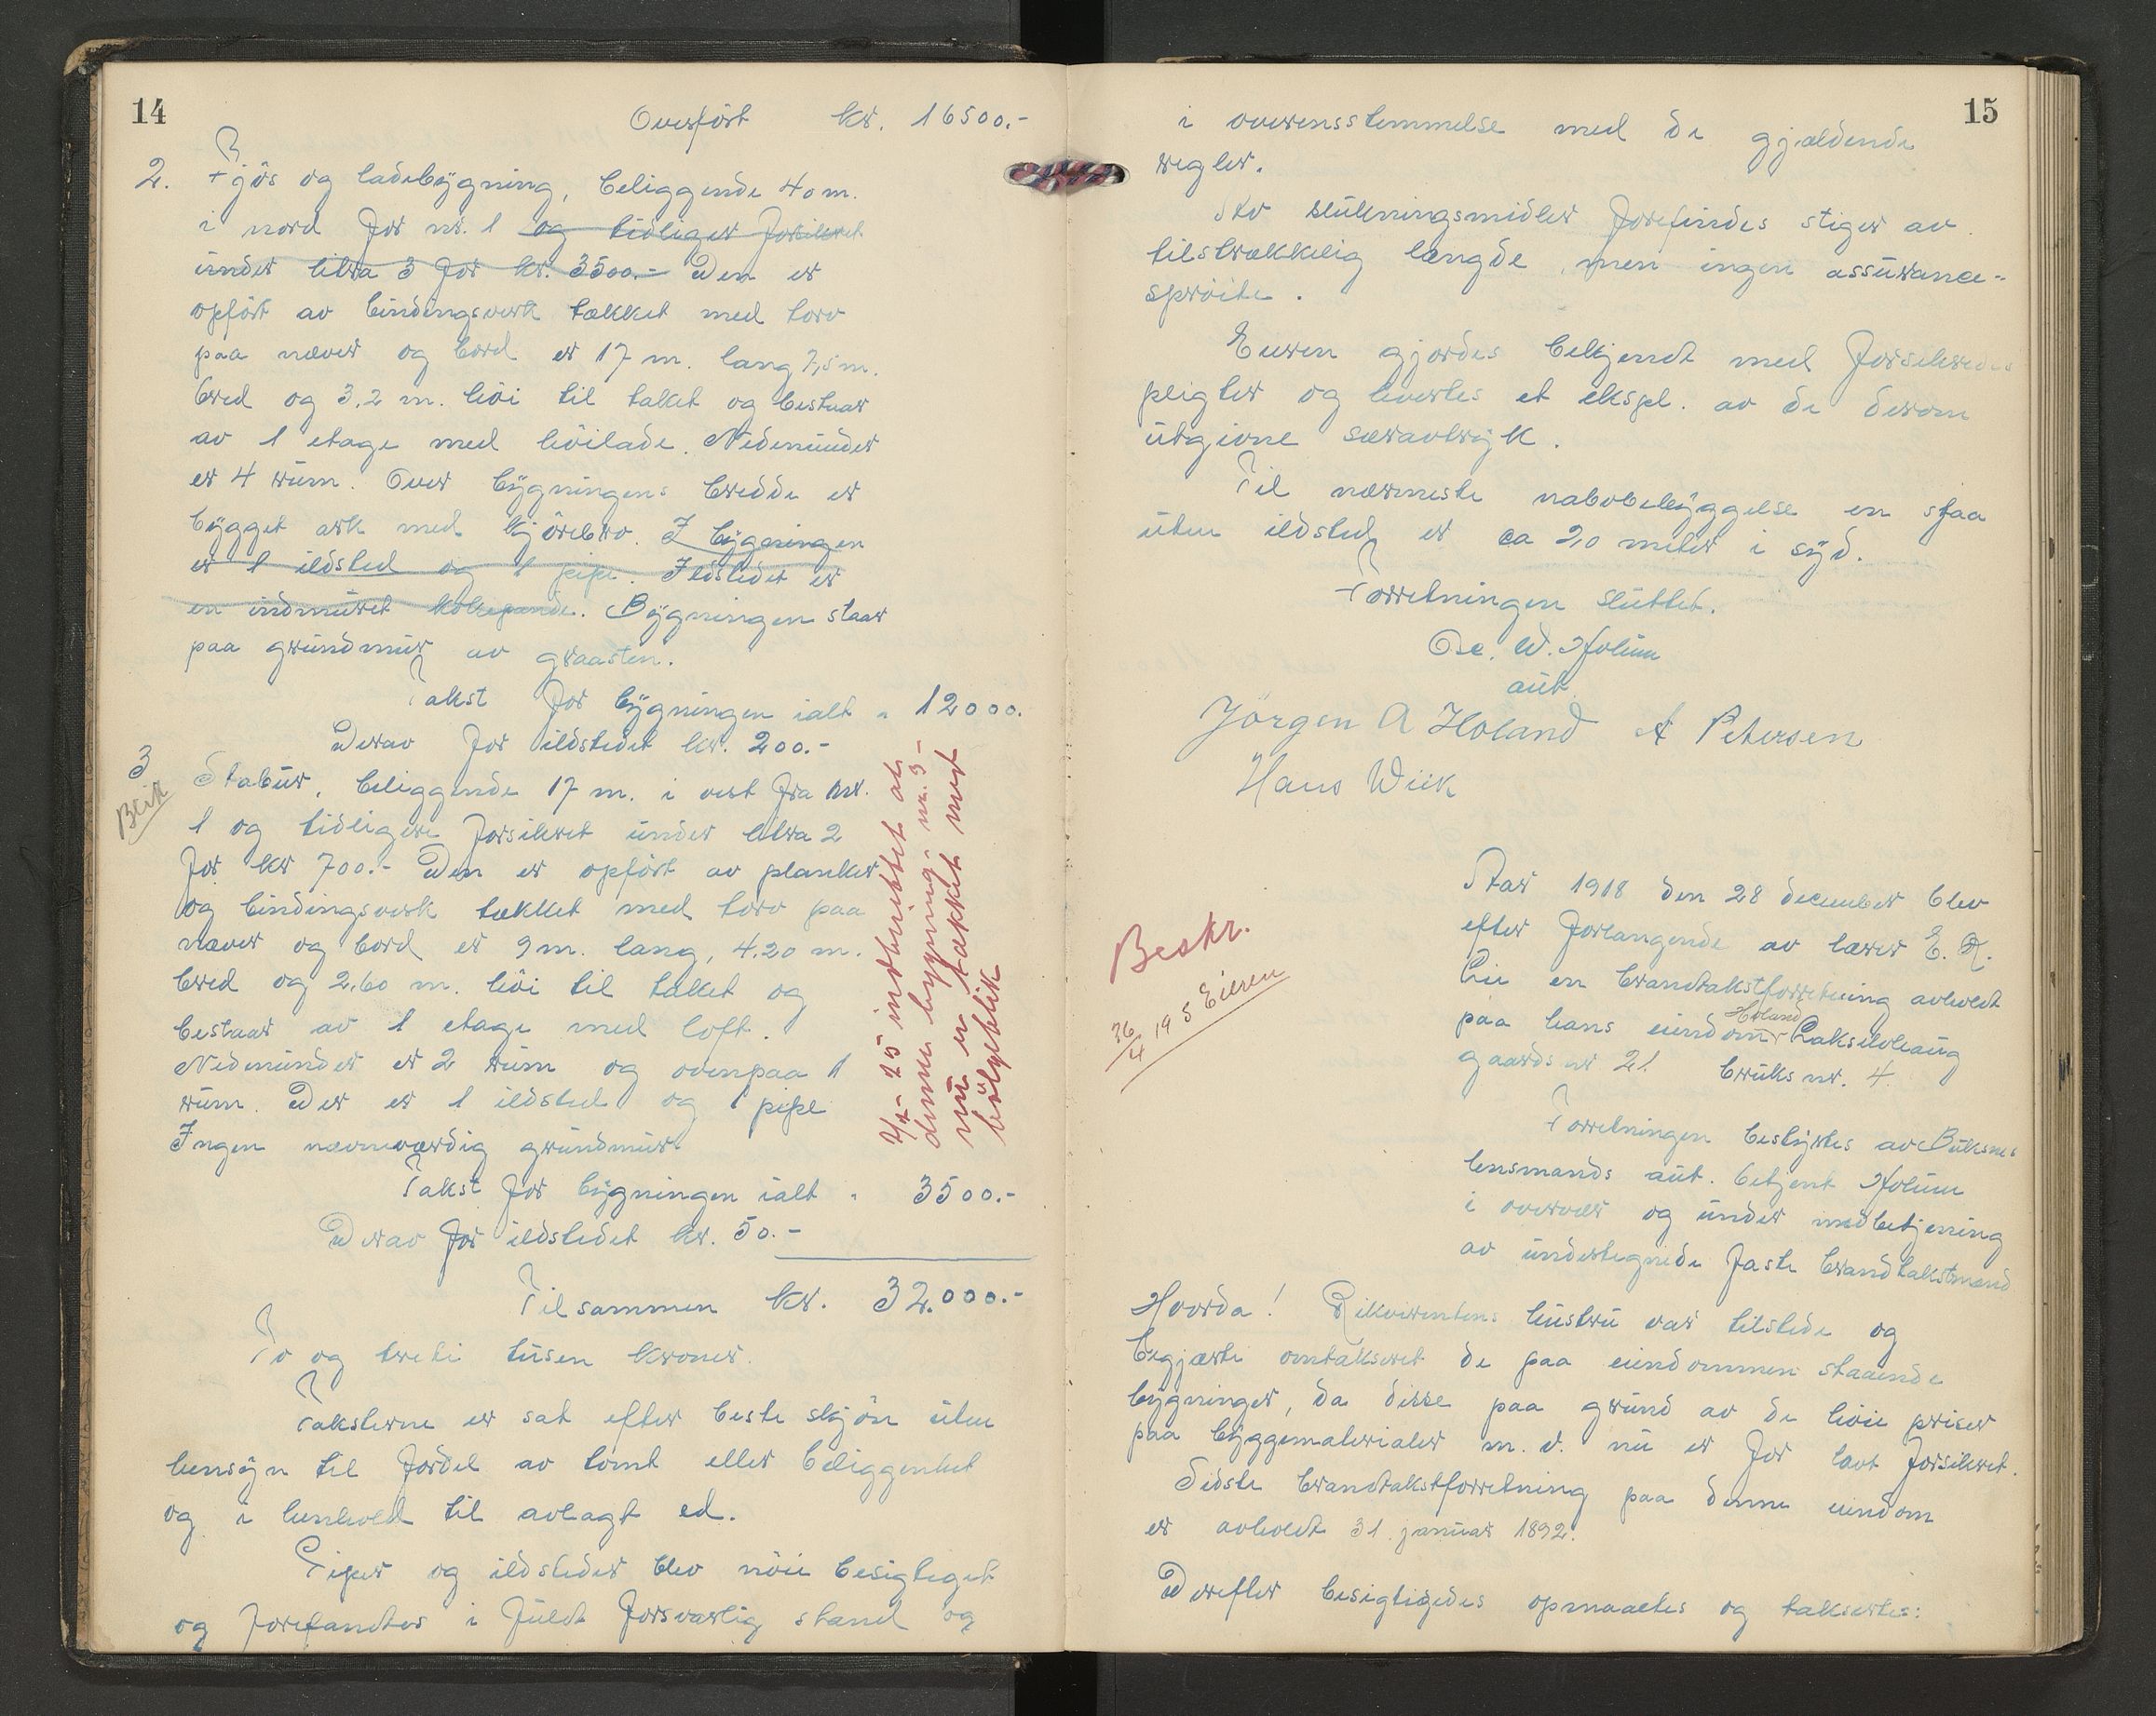 14
Overført kr. 16500.-
2. Fjøs og ladebygning, beliggende 40 m.
i nord for nr. 1 og tidliger forsikret
under litra 3 for kr. 3500.- Den er
opført av bindingsverk tækket med torv
paa næver og bord er 17 m. lang 7,5 m.
bred og 3,2 m. høi til taket og bestaar
av 1 etage med høilade. Nedenunder
er 4 rum. Over bygningens bredde er
bygget ark med kjørebro. I bygningen
er 1 ildsted og 1 pipe. Ildstedet er
en indmuret kokepande. Bygningen staar
paa grundmur av graasten.
Takst for bygningen ialt " 12000.
Derav for ildstedet kr. 200.-
3 Stabur, beliggende 17 m. i vest fra nr.
1 og tidligere forsikret under litra 2
for kr 700.- Den er opført av planker
og bindingsverk tækket med torv paa
næver og bord er 9 m. lang, 4.20 m.
bred og 2.60 m. høi til taket og
bestaar av 1 etage med loft.
Nedenunder er 2 rum og ovenpaa 1
rum. Der er 1 ildsted og 1 pipe
Ingen nævneværdig grundmur.
Takst for bygningen ialt " 3500.-
Derav for ildstedet kr. 50.-
Tilsammen kr. 32.000.-
To og treti tusen kroner.
Taksterne er sat efter beste skjøn uten
hensyn til fordel av tomt eller beliggenhet
og i henhold til avlagt ed.
Piper og ildsteder blev nøie besigtiget
og forefandtes i fuldt forsvarlig stand og
- 25 indberettet at
denne bygning - nr. 3 -
nu er takket med
bølgeblik
15
i overensstemmelse med de gjældende
regler.
Av slukningsmidler forefindes stiger av
tilstrækkelig længde, men ingen assurance-
sprøite.
Eieren gjordes bekjendt med forsikredes
pligter og levertes et ekspl. av de derom
utgivne særavtryk.
Til nærmeste nabobebyggelse en sjaa
uten ildsted er ca 20 meter i syd.
Forretningen sluttet.
Ose. W. Holum
aut.
Jørgen A Holand A Petersen
Hans Wiik
Beskr.
26/4 19 5 Eieren
Aar 1918 den 28 december blev
efter forlangende av lærer E. A.
Lie en brandtakstforretning avholdt
Holand
paa hans eiendom Lakselvhaug
gaards nr 21 bruks nr. 4.
Forretningen bestyrtes av Buksnes
lensmands aut. betjent Holum
i overvær og under medbetjening
av undertegnede faste brandtakstmænd
Hvorda! Rekvirentens hustru var tilstede og
begjærte omtakseret de paa eiendommen staaende
bygninger, da disse paa grund av de høie priser
paa byggematerialer m. v. nu er for lavt forsikret.
Sidste brandtakstforretning paa denne eiendom
er avholdt 31 januar 1892.
Derefter besigtigedes opmaaltes og taksertes: